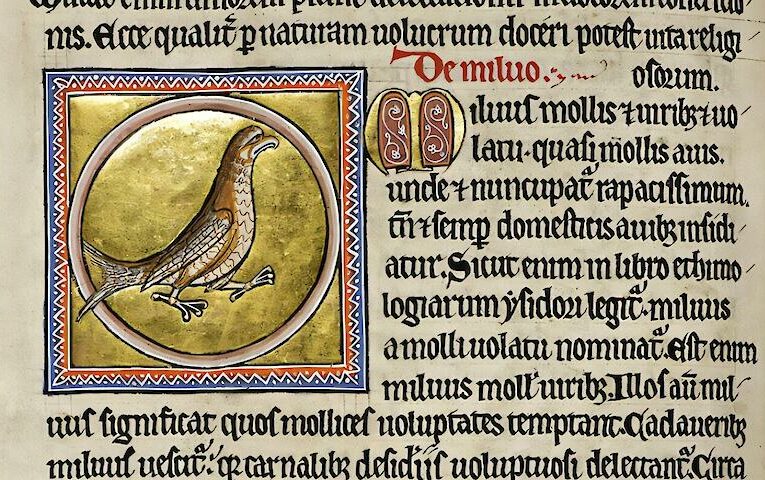 nis. Ecce qualit̃ p naturam uolucrum doceri potest uita religi
De miluo. osorum.
Miluus mollis ⁊ uiribꝫ ⁊ uo
latu. quasi mollis auis.
unde ⁊ nuncupat᷑ rapacissimum.
tñ ⁊ semꝑ domesticis auibꝫ insidi
atur. Sicut enim in libro ethimo
logiarum ysidori legit᷑. miluus
a molli uolatu nominat᷑. Est enim
miluus moll' uiribꝫ. Illos aũ mil
uus significat quos mollices uoluptates temptant. Cadaueribꝫ
miluus uescit᷑. qꝛ carnalibꝫ desideriis uoluptuosi delectant᷑. Circa